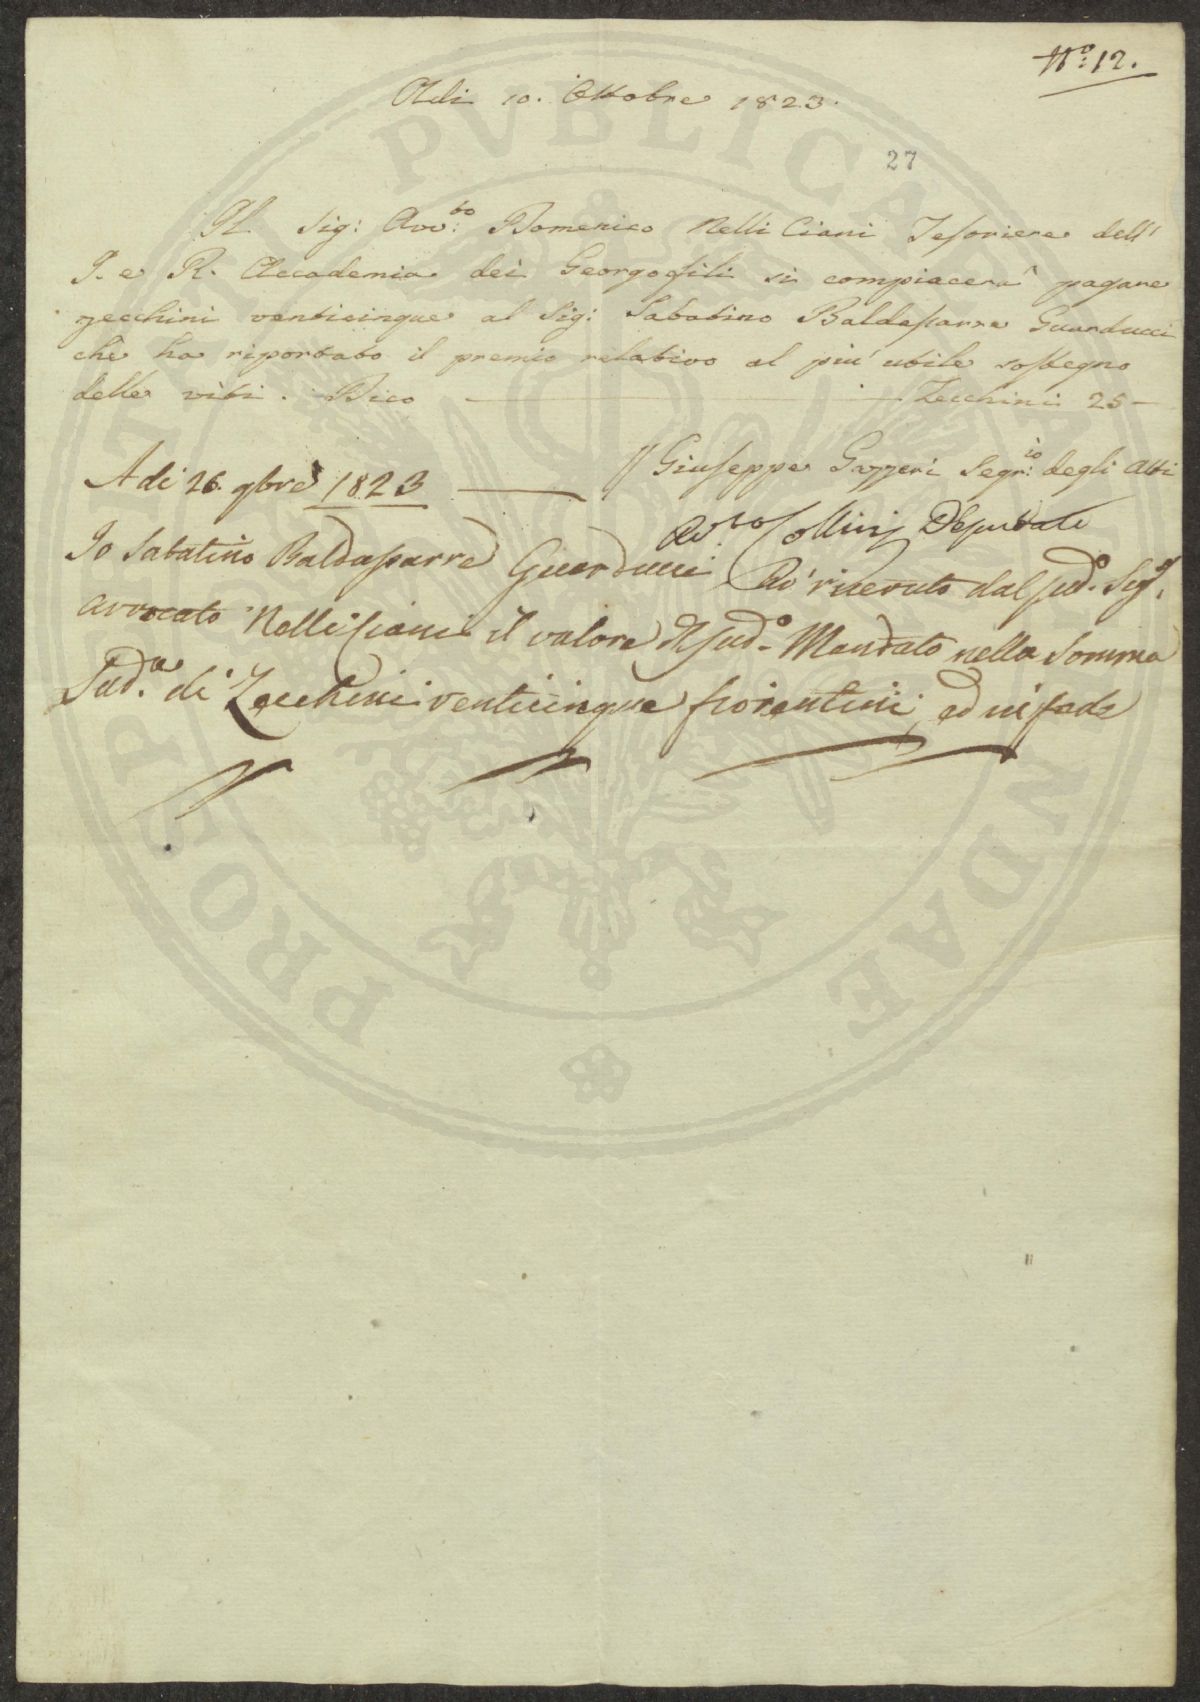 N.º 12.
Adi 10. Ottobre 1823.
27
Il Sig: Avv:to Domenico Nelli Ciani Tesoriere dell'
I. e R. Accademia dei Georgofili si compiacerà pagare
zecchini venticinque al Sig: Sabatino Baldassarre Guarducci
che ha riportato il premio relativo al più utile sostegno
delle viti. Dico — Zecchini 25 —
Giuseppe Gazzeri Segr:io degli Atti
A di 26. 9bre 1823
Deputato
Io Sabatino Baldassarre Guarducci ò ricevuto dal sud.º Sig.e
avvocato Nelli Ciani il valore del sud.º Mandato nella Somma
Sud.a di Zecchini venticinque fiorentini, ed in fede
PROSPERITATI PVBLICAE AVGENDAE